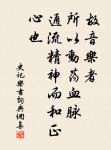 故音樂者
所以動盪血脈
通流精神而和正
心也
史記樂書詞典網集